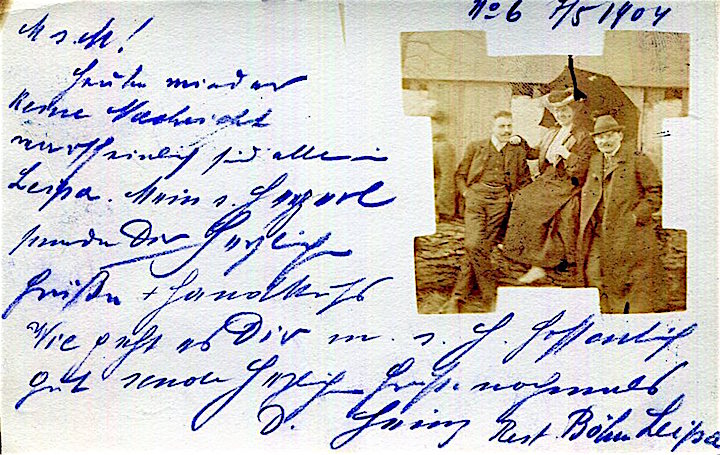 No 6 7/5 1904
M. s. M!
Heute wieder
keine Nachricht
sind alle in
Leipa. Mein s. Herzerl
sende Dir Herzliche
Grüße + Handkuss
Wie geht es Dir m. s. H. hoffentlich
gut sende Herzliche Grüße nochmals
D. Heinz Rest. Böhm Leipa